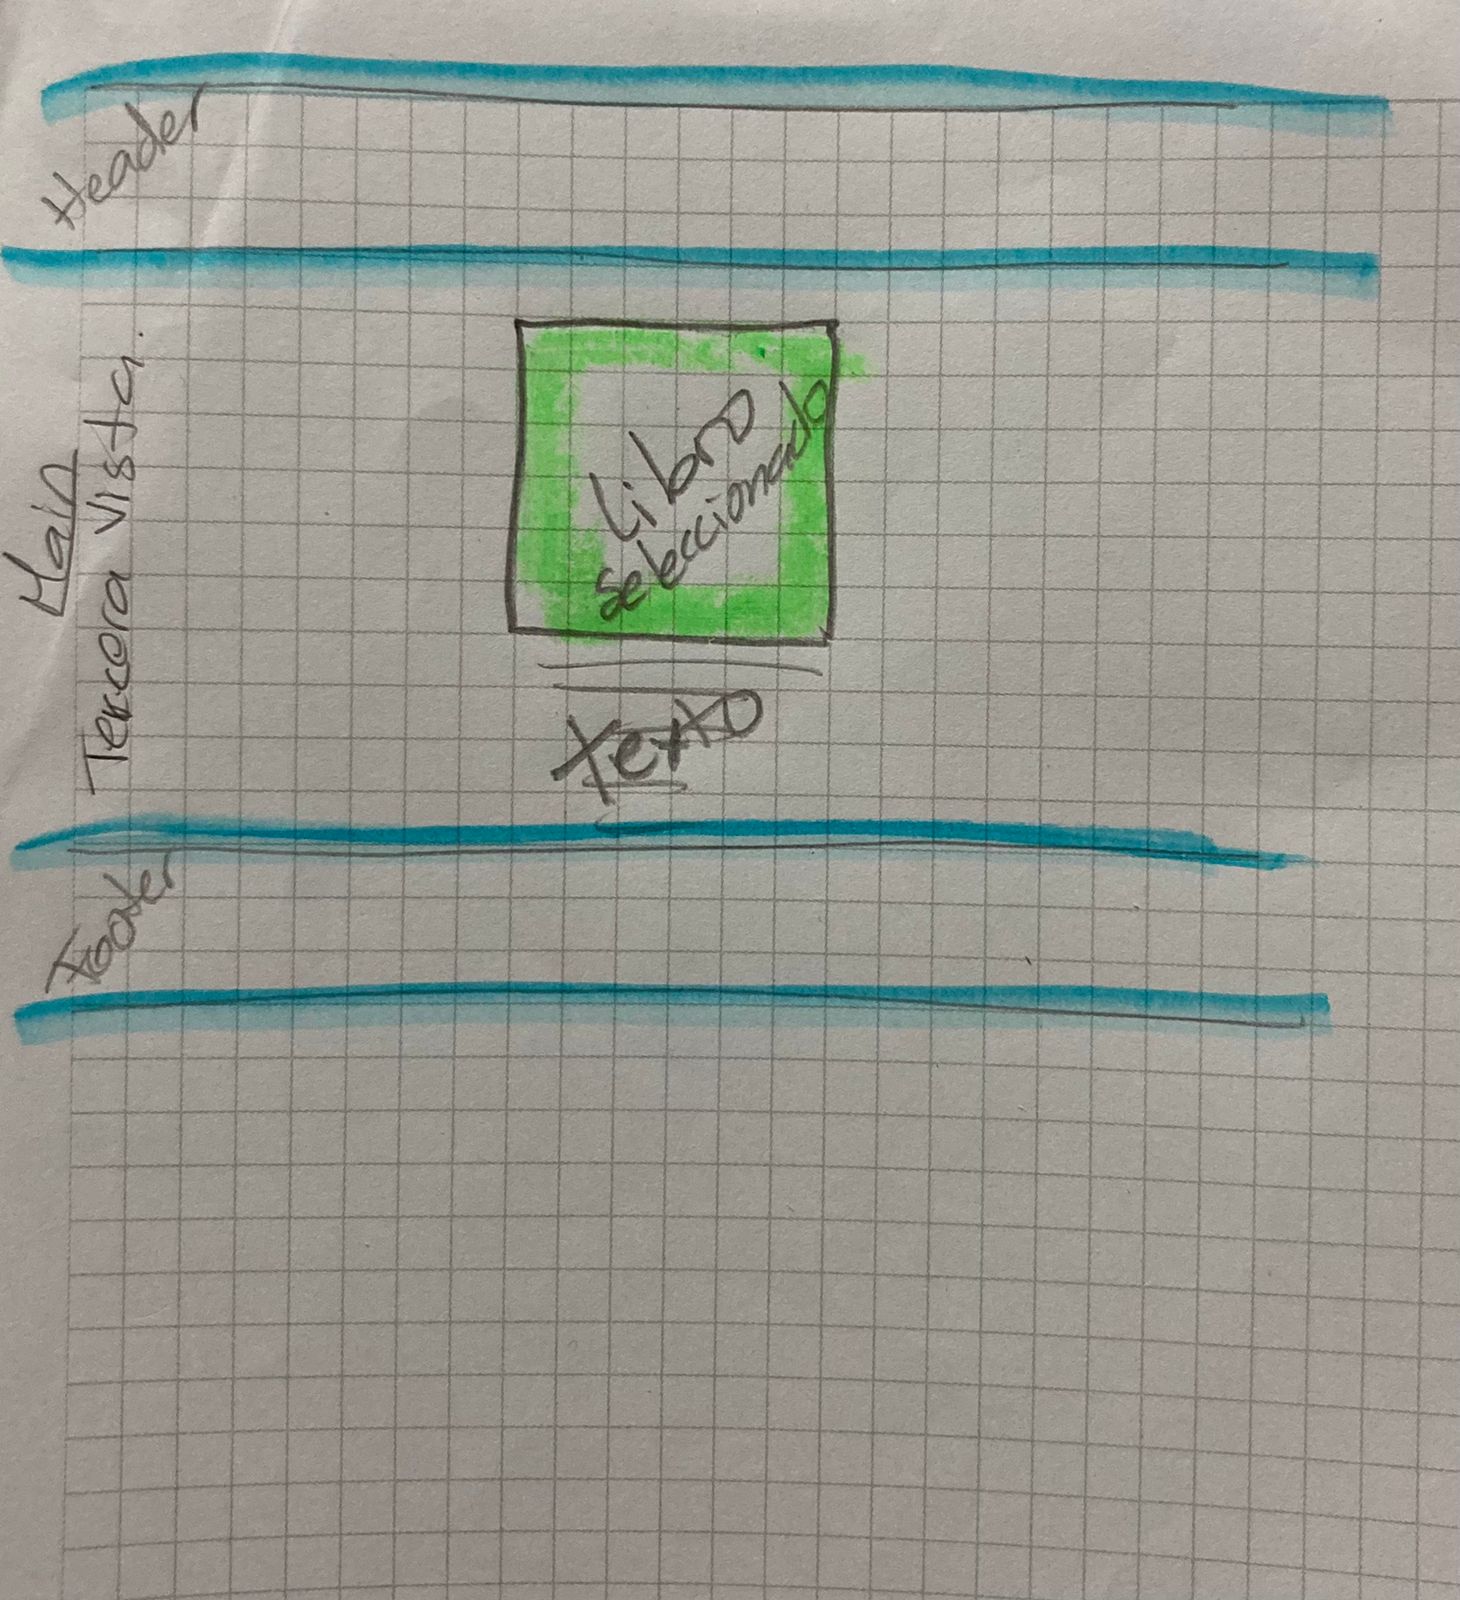 Header
Main
Tercera vista.
Libro
seleccionado
texto
Footer